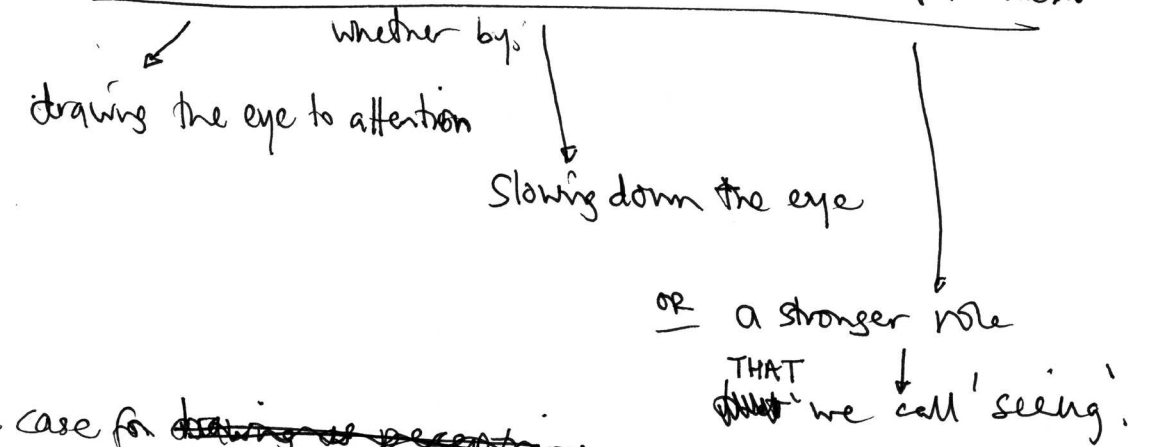 whether by:
drawing the eye to attention
Slowing down the eye
OR a stronger role
THAT
we call 'seeing'.
case for